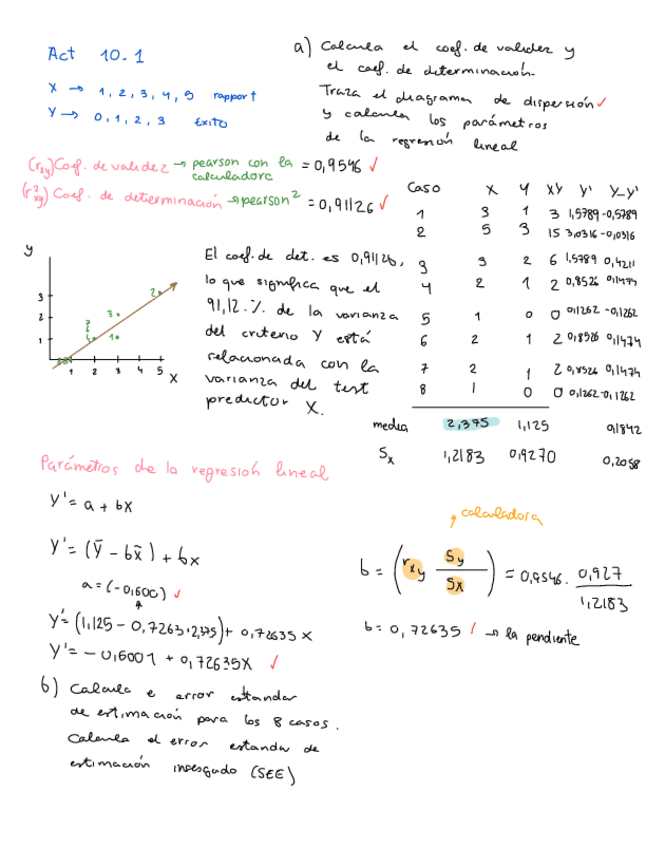 Act 10.1
X → 1, 2, 3, 4, 5 rapport
Y → 0, 1, 2, 3 Éxito
a) Calcula el coef. de validez y
el coef. de determinación.
Traza el diagrama de dispersión ✓
y calcula los parámetros
de la regresión lineal
(rxy) Coef. de validez → pearson con la calculadora = 0,9546 ✓
(r²xy) Coef. de determinación → pearson² = 0,91126 ✓
Caso X Y XY Y' Y-Y'
1 3 1 3 1,5789 -0,5789
2 5 3 15 3,0316 -0,0316
3 3 2 6 1,5789 0,4211
4 2 1 2 0,8526 0,1474
5 1 0 0 0,1262 -0,1262
6 2 1 2 0,8526 0,1474
7 2 1 2 0,8526 0,1474
8 1 0 0 0,1262 -0,1262
media 2,375 1,125 0,1842
Sx 1,2183 0,9270 0,2058
y
3
2
1
1 2 3 4 5
X
El coef. de det. es 0,91126,
lo que significa que el
91,12 % de la varianza
del criterio Y está
relacionada con la
varianza del test
predictor X.
Parámetros de la regresión lineal
Y' = a + bX
Y' = (Ȳ - bX̄) + bX
a = (-0,600) ✓
Y' = (1,125 - 0,7263·2,375) + 0,72635 X
Y' = -0,6001 + 0,72635X ✓
calculadora
b = (rxy Sy/Sx) = 0,9546 · 0,927/1,2183
b = 0,72635 → la pendiente
b) Calcula e error estandar
de estimación para los 8 casos.
Calcula el error estandar de
estimación insesgado (SEE)